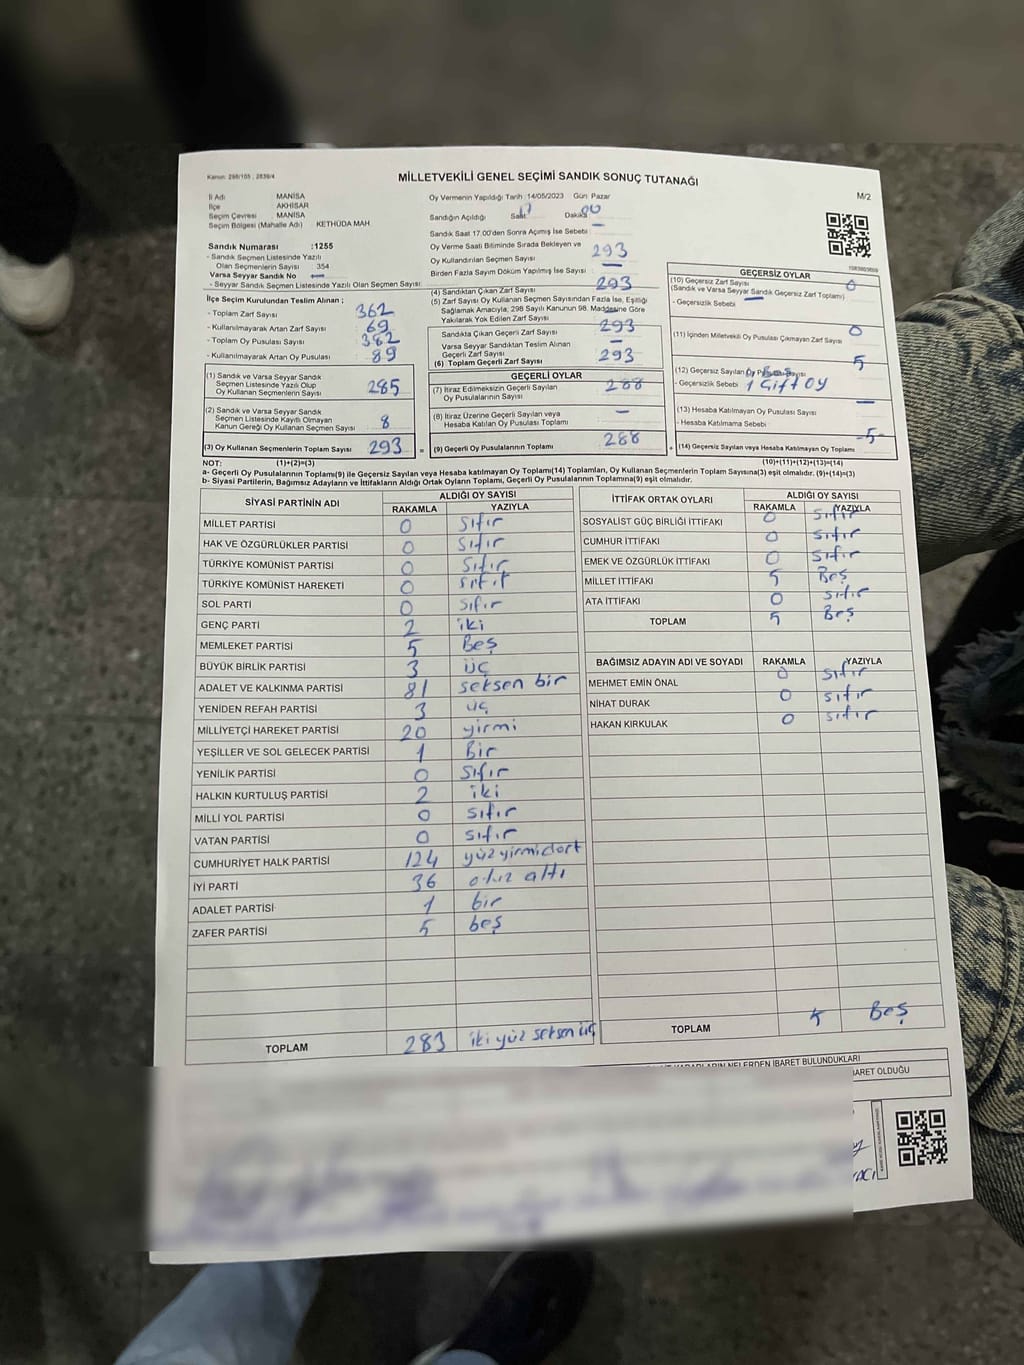 Kanun: 298/105 ; 2839/4
MİLLETVEKİLİ GENEL SEÇİMİ SANDIK SONUÇ TUTANAĞI
M/2
İl Adı MANİSA
İlçe AKHİSAR
Seçim Çevresi MANİSA
Seçim Bölgesi (Mahalle Adı) KETHÜDA MAH
Sandık Numarası :1255
- Sandık Seçmen Listesinde Yazılı
Olan Seçmenlerin Sayısı 354
Varsa Seyyar Sandık No —
- Seyyar Sandık Seçmen Listesinde Yazılı Olan Seçmen Sayısı
İlçe Seçim Kurulundan Teslim Alınan ;
- Toplam Zarf Sayısı 362
- Kullanılmayarak Artan Zarf Sayısı 69
- Toplam Oy Pusulası Sayısı 382
- Kullanılmayarak Artan Oy Pusulası 89
(1) Sandık ve Varsa Seyyar Sandık
Seçmen Listesinde Yazılı Olup
Oy Kullanan Seçmenlerin Sayısı 285
(2) Sandık ve Varsa Seyyar Sandık
Seçmen Listesinde Kayıtlı Olmayan
Kanun Gereği Oy Kullanan Seçmen Sayısı 8
(3) Oy Kullanan Seçmenlerin Toplam Sayısı 293
Oy Vermenin Yapıldığı Tarih :14/05/2023 Gün: Pazar
Sandığın Açıldığı Saat 17 Dakika 00
Sandık Saat 17.00'den Sonra Açılmış İse Sebebi —
Oy Verme Saati Bitiminde Sırada Bekleyen ve
Oy Kullandırılan Seçmen Sayısı 293
Birden Fazla Sayım Döküm Yapılmış İse Sayısı —
(4) Sandıktan Çıkan Zarf Sayısı 293
(5) Zarf Sayısı Oy Kullanan Seçmen Sayısından Fazla İse, Eşitliği
Sağlamak Amacıyla, 298 Sayılı Kanunun 98. Maddesine Göre
Yakılarak Yok Edilen Zarf Sayısı —
Sandıkta Çıkan Geçerli Zarf Sayısı 293
Varsa Seyyar Sandıktan Teslim Alınan
Geçerli Zarf Sayısı —
(6) Toplam Geçerli Zarf Sayısı 293
GEÇERLİ OYLAR
(7) İtiraz Edilmeksizin Geçerli Sayılan
Oy Pusulalarının Sayısı 288
(8) İtiraz Üzerine Geçerli Sayılan veya
Hesaba Katılan Oy Pusulası Toplamı —
= (9) Geçerli Oy Pusulalarının Toplamı 288
GEÇERSİZ OYLAR
(10) Geçersiz Zarf Sayısı 0
(Sandık ve Varsa Seyyar Sandık Geçersiz Zarf Toplamı)
- Geçersizlik Sebebi —
(11) İçinden Milletvekili Oy Pusulası Çıkmayan Zarf Sayısı 0
(12) Geçersiz Sayılan Oy Pusulası Sayısı 5
- Geçersizlik Sebebi 1 Çift OY
(13) Hesaba Katılmayan Oy Pusulası Sayısı —
- Hesaba Katılmama Sebebi
+ (14) Geçersiz Sayılan veya Hesaba Katılmayan Oy Toplamı -5-
NOT: (1)+(2)=(3) (10)+(11)+(12)+(13)=(14)
a- Geçerli Oy Pusulalarının Toplamı(9) ile Geçersiz Sayılan veya Hesaba katılmayan Oy Toplamı(14) Toplamları, Oy Kullanan Seçmenlerin Toplam Sayısına(3) eşit olmalıdır. (9)+(14)=(3)
b- Siyasi Partilerin, Bağımsız Adayların ve İttifakların Aldığı Ortak Oyların Toplamı, Geçerli Oy Pusulalarının Toplamına(9) eşit olmalıdır.
SİYASİ PARTİNİN ADI ALDIĞI OY SAYISI
RAKAMLA YAZIYLA
MİLLET PARTİSİ 0 Sıfır
HAK VE ÖZGÜRLÜKLER PARTİSİ 0 Sıfır
TÜRKİYE KOMÜNİST PARTİSİ 0 Sıfır
TÜRKİYE KOMÜNİST HAREKETİ 0 sıfır
SOL PARTİ 0 sıfır
GENÇ PARTİ 2 iki
MEMLEKET PARTİSİ 5 Beş
BÜYÜK BİRLİK PARTİSİ 3 üç
ADALET VE KALKINMA PARTİSİ 81 seksen bir
YENİDEN REFAH PARTİSİ 3 üç
MİLLİYETÇİ HAREKET PARTİSİ 20 yirmi
YEŞİLLER VE SOL GELECEK PARTİSİ 1 Bir
YENİLİK PARTİSİ 0 Sıfır
HALKIN KURTULUŞ PARTİSİ 2 iki
MİLLİ YOL PARTİSİ 0 sıfır
VATAN PARTİSİ 0 sıfır
CUMHURİYET HALK PARTİSİ 124 yüz yirmi dört
İYİ PARTİ 36 otuz altı
ADALET PARTİSİ 1 bir
ZAFER PARTİSİ 5 beş
TOPLAM 283 iki yüz seksen üç
İTTİFAK ORTAK OYLARI ALDIĞI OY SAYISI
RAKAMLA YAZIYLA
SOSYALİST GÜÇ BİRLİĞİ İTTİFAKI 0 sıfır
CUMHUR İTTİFAKI 0 sıfır
EMEK VE ÖZGÜRLÜK İTTİFAKI 0 sıfır
MİLLET İTTİFAKI 5 Beş
ATA İTTİFAKI 0 sıfır
TOPLAM 5 Beş
BAĞIMSIZ ADAYIN ADI VE SOYADI RAKAMLA YAZIYLA
MEHMET EMİN ÖNAL 0 sıfır
NİHAT DURAK 0 sıfır
HAKAN KIRKULAK 0 sıfır
TOPLAM 5 Beş
NELERDEN İBARET BULUNDUKLARI
İBARET OLDUĞU